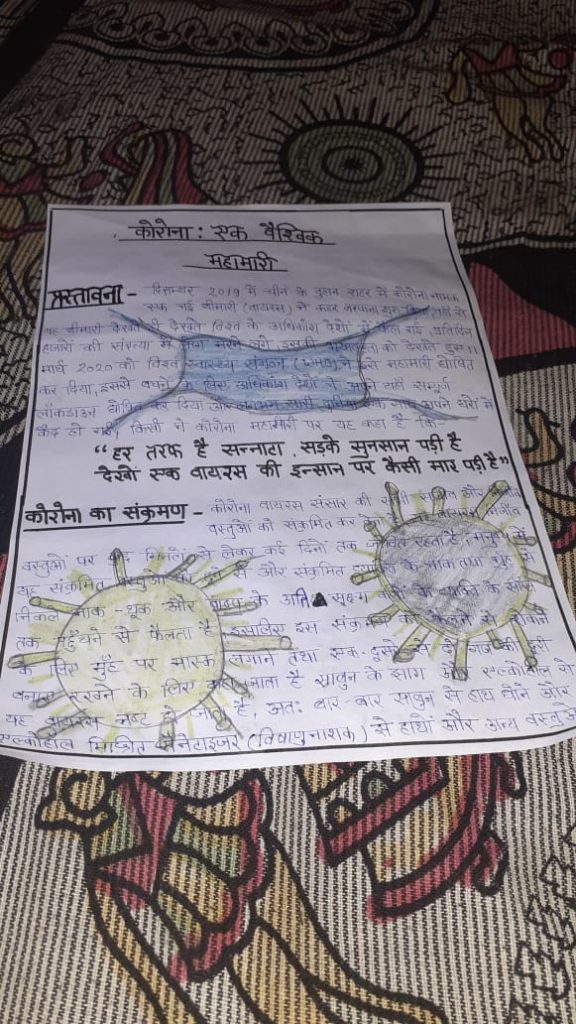 कोरोना : एक वैश्विक
महामारी
प्रस्तावना - दिसम्बर 2019 में चीन के वुहान शहर में कोरोना नामक
एक नई बीमारी (वायरस) ने कहर
यह बीमारी देखते ही देखते विश्व के अधिकांश देशों में फैल गई, प्रतिदिन
हजारों की संख्या में लोग मरने लगे इसकी को देखते हुए 11
मार्च 2020 को विश्व स्वास्थ्य संगठन ने इसे महामारी घोषित
कर दिया, इससे बचने के लिए अधिकांश देशों ने अपने यहाँ सम्पूर्ण
लॉकडाउन घोषित कर दिया और लगभग सारी अपने घरों में
कैद हो गई, किसी ने कोरोना महामारी पर यह कहा है कि-
“हर तरफ है सन्नाटा, सड़के सुनसान पड़ी है
देखो एक वायरस की इन्सान पर कैसी मार पड़ी है”
कोरोना का संक्रमण - कोरोना वायरस संसार की सभी और
वस्तुओं को संक्रमित कर
वस्तुओं पर से लेकर कई दिनों तक रहता है,
यह संक्रमित से और संक्रमित के नाक तथा मुँह से
निकले नाक - थूक और के अति सूक्ष्म के व्यक्ति के
तक पहुँचने से फैलता है इसलिए इस को फैलने से रोकने
के लिए मुँह पर मास्क लगाने तथा एक-दूसरे से दो गज की दूरी
बनाए रखने के लिए कहा जाता है साबुन के झाग और एल्कोहाल से
यह वायरस नष्ट हो जाता है, अतः बार-बार साबुन से हाथ धोने और
एल्कोहाल मिश्रित सैनेटाइजर (विषाणुनाशक) से हाथों और अन्य वस्तुओं